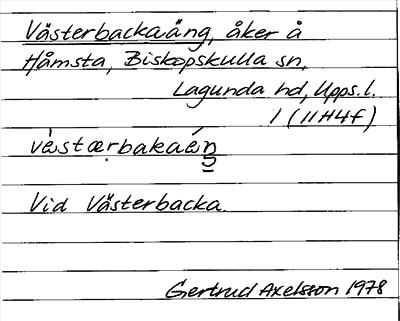 Västerbackaäng, åker å
Håmsta, Biskopskulla sn,
Lagunda hd, Upps.l.
1 (11H4f)
Vid Västerbacka.
Gertrud Axelsson 1978